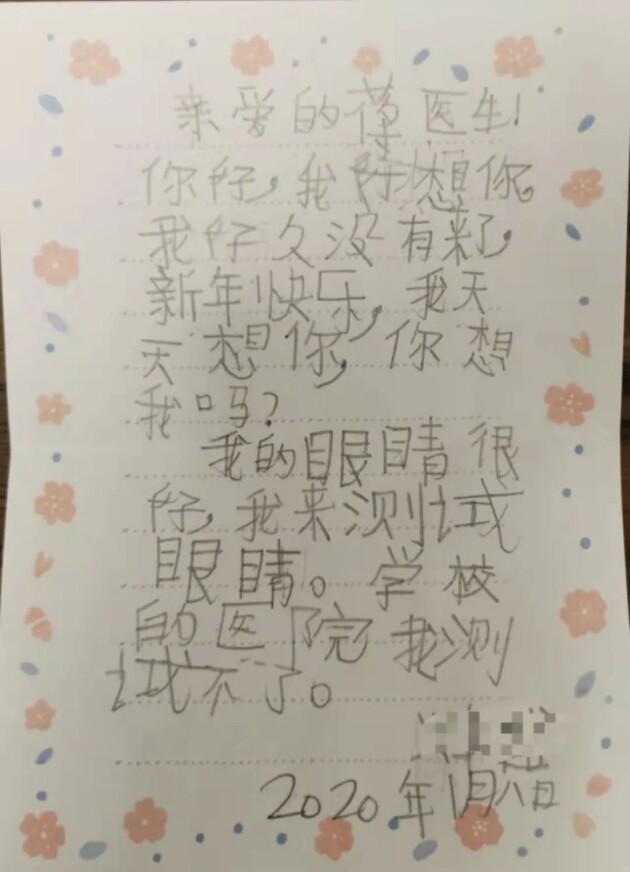 亲爱的 医生!
你好,我 想你。
我好久没有来了,
新年快乐,我天
天想你,你想
我吗?
我的眼睛很
好,我来测试
眼睛。学校
的医院我测
试不了。
2020年1月六日